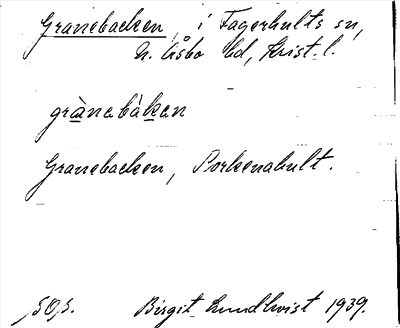 Granebacken, i Fagerhults sn,
N. Åsbo hd, Krist. l.
grànebàkan
Granebacken, Porkenahult.
S.O.S. Birgit Lundkvist 1939.